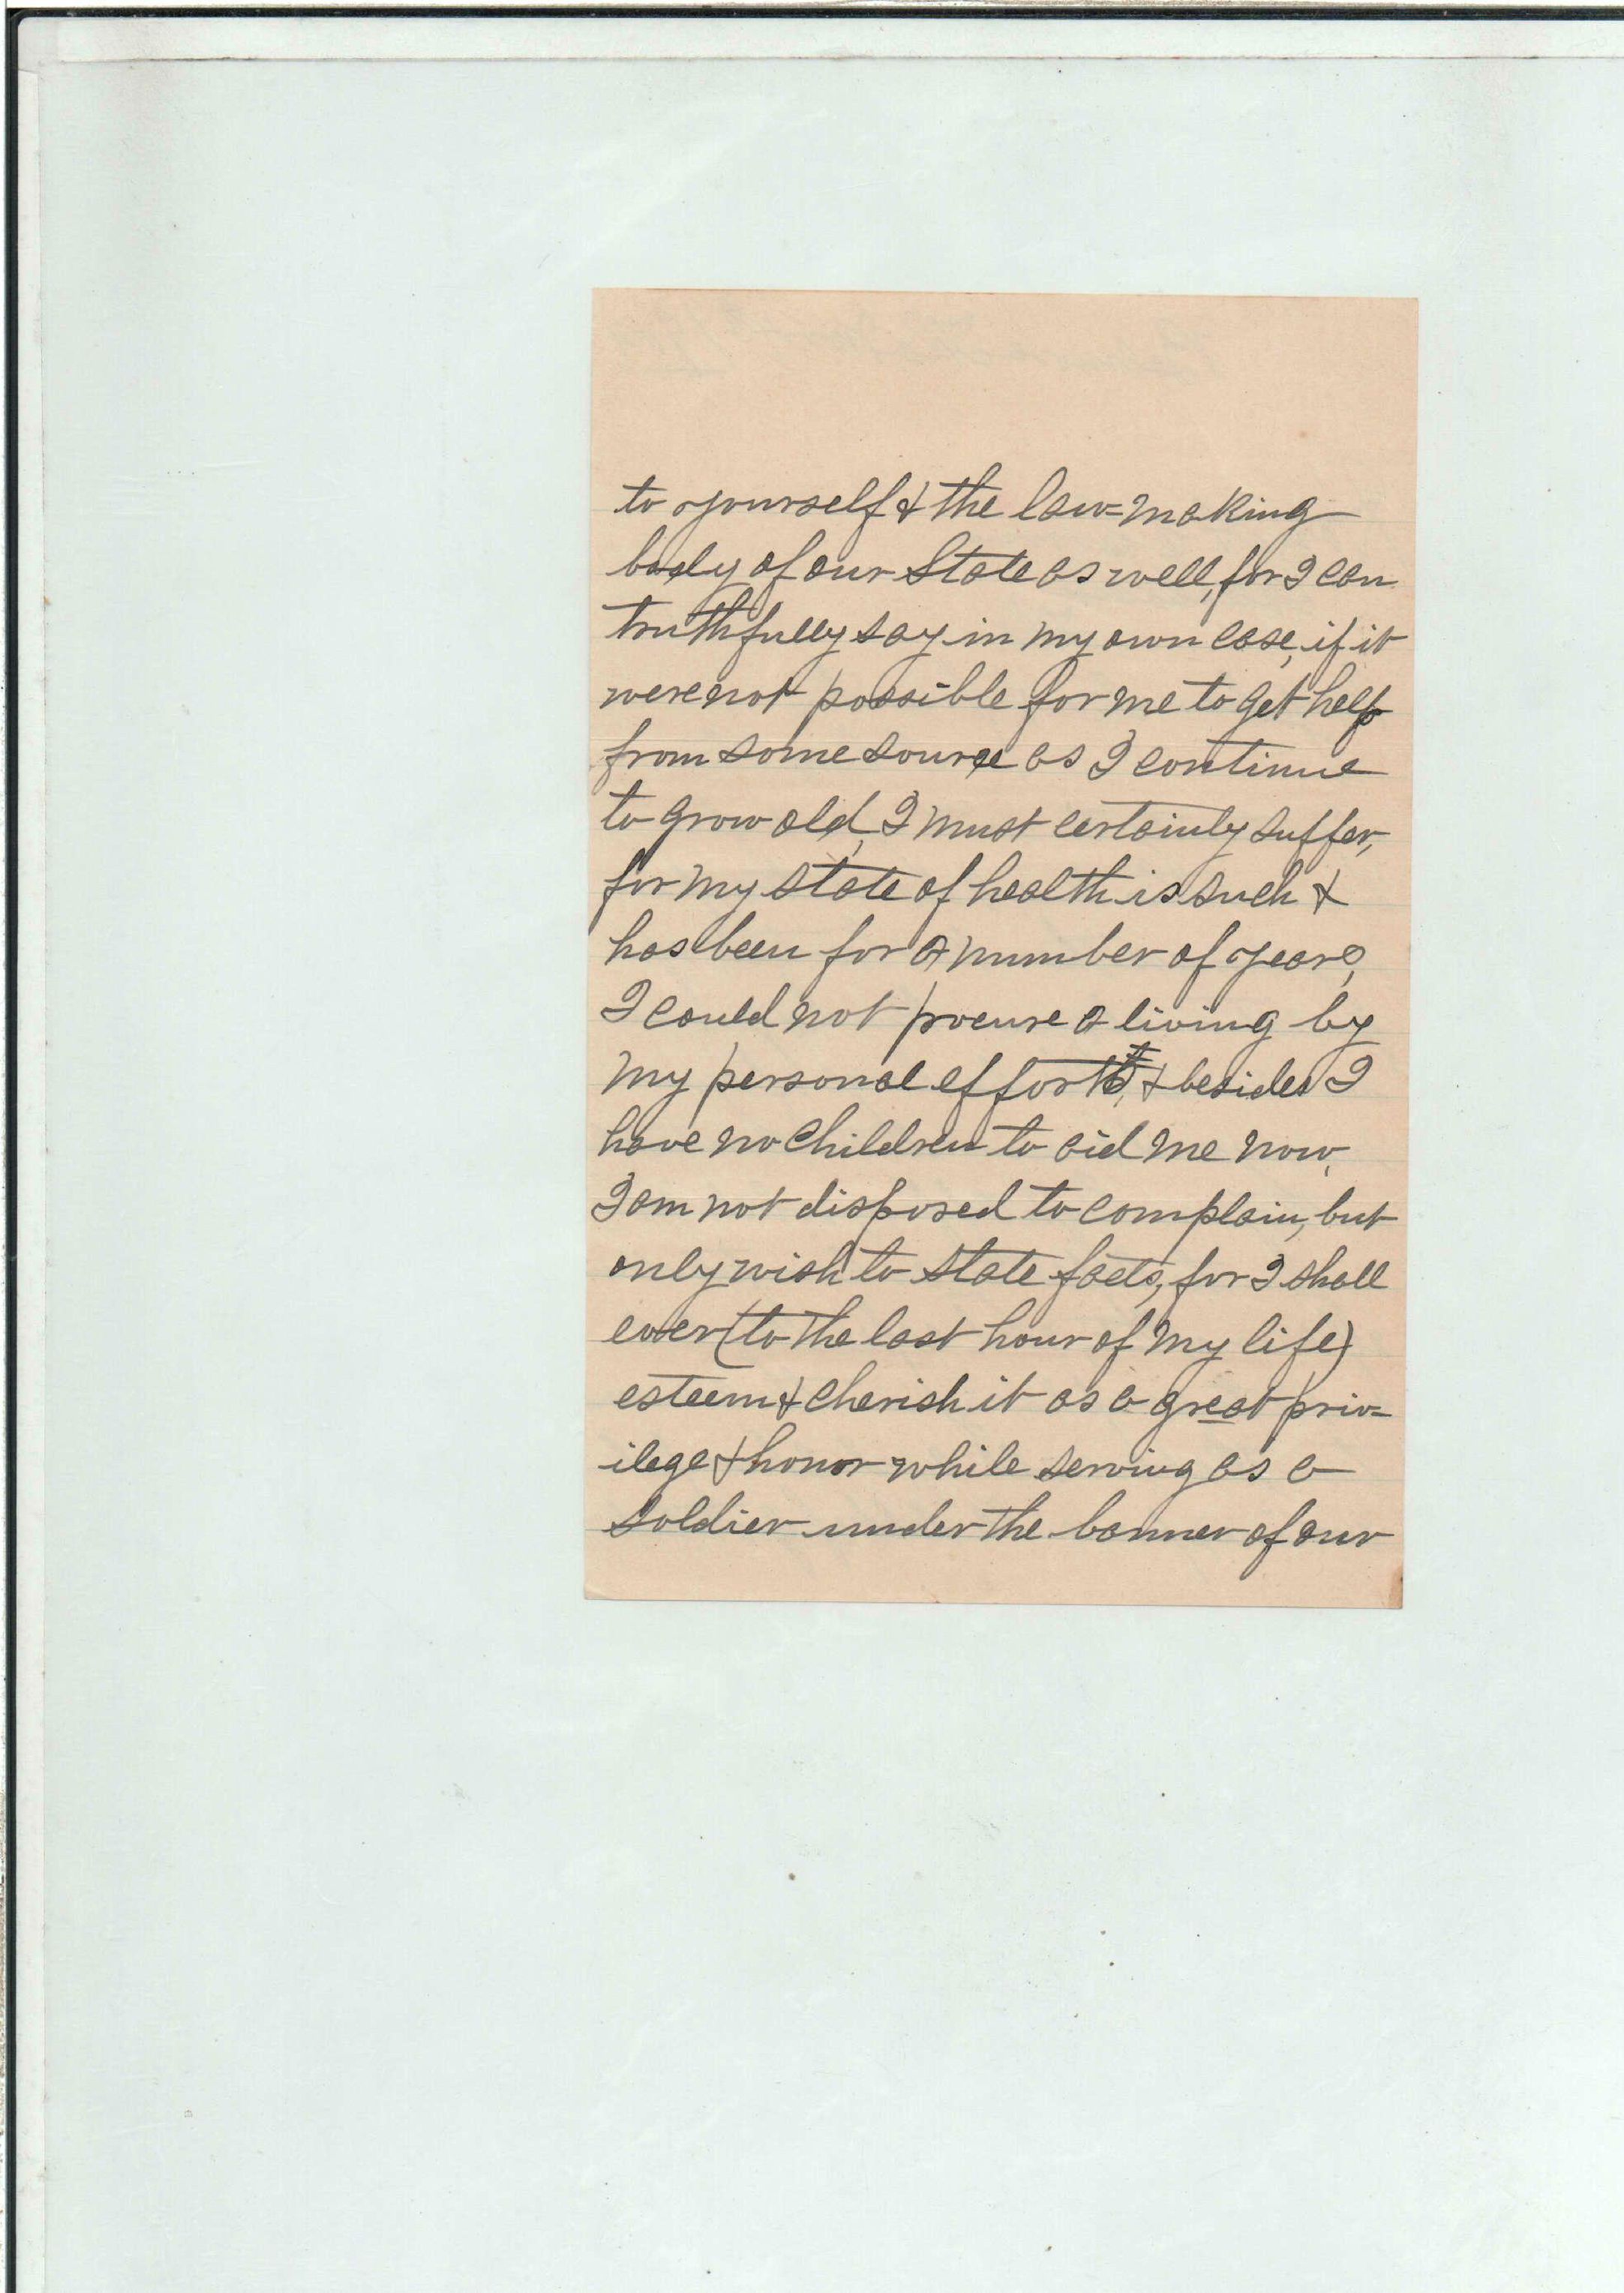 to yourself & the law=making
body of our State as well, for I can
truthfully say in my own case, if it
were not possible for me to get help
from some source as I continue
to grow old, I must certainly suffer,
for my state of health is such &
has been for a number of years,
I could not procure a living by
my personal efforts, & besides I
have no children to aid me now,
I am not disposed to complain, but
only wish to state facts, for I shall
ever (to the last hour of my life)
esteem & cherish it as a great priv=
ilege & honor while serving as a
soldier under the banner of our